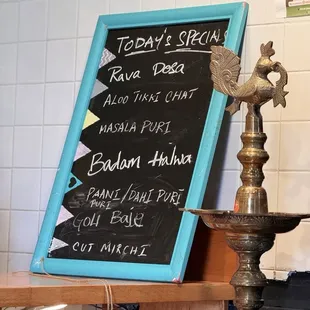 TODAY'S SPECIALS
Rava Dosa
ALOO TIKKI CHAT
MASALA PURI
Badam Halwa
PAANI/DAHI PURI
PURI
GOLI Baje
CUT MIRCHI